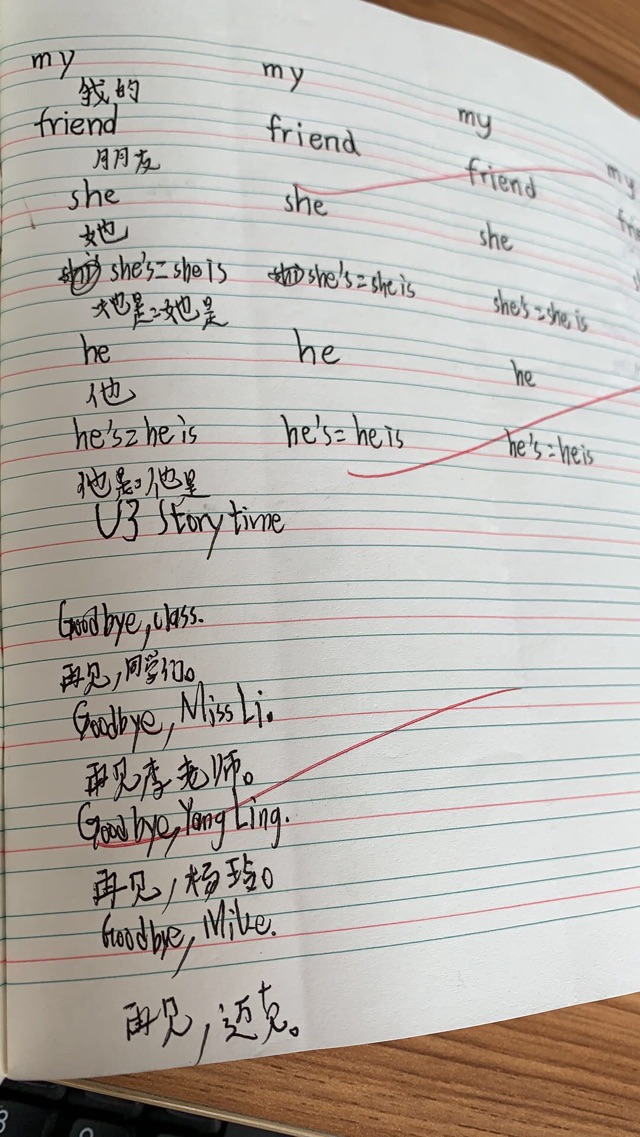 my my my my
我的
friend friend friend
朋友
she she she
她
she's=she is she's=she is she's=she is
她是=她是
he he he
他
he's=he is he's=he is he's=he is
他是=他是
U3 Story time
Goodbye, class.
再见,同学们。
Goodbye, Miss Li.
再见李老师。
Goodbye, Yang Ling.
再见,杨玲。
Goodbye, Mike.
再见,迈克。